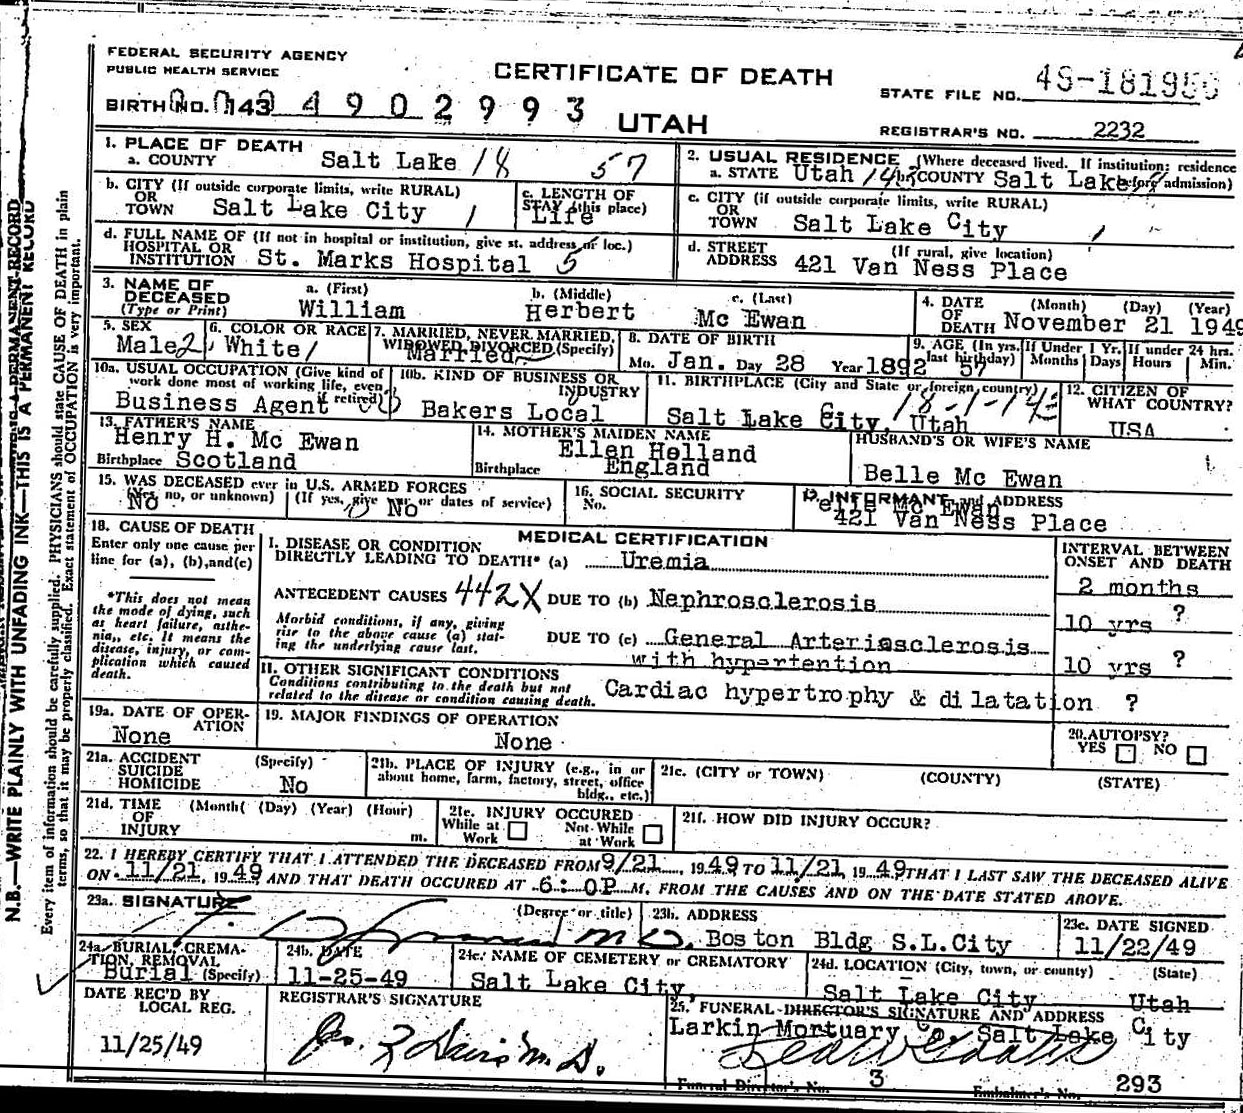 FEDERAL SECURITY AGENCY
PUBLIC HEALTH SERVICE
CERTIFICATE OF DEATH
STATE FILE NO.
BIRTH NO. 143 4 9 0 2 9 9 3
UTAH
REGISTRAR'S NO. 2232
1. PLACE OF DEATH
a. COUNTY Salt Lake 18 57
2. USUAL RESIDENCE (Where deceased lived. If institution: residence
a. STATE Utah b. COUNTY Salt Lake before admission)
b. CITY (If outside corporate limits, write RURAL)
OR
TOWN Salt Lake City 1
c. LENGTH OF
STAY (this place)
Life
c. CITY (if outside corporate limits, write RURAL)
OR
TOWN Salt Lake City
d. FULL NAME OF (If not in hospital or institution, give st. address or loc.)
HOSPITAL OR
INSTITUTION St. Marks Hospital 5
d. STREET (If rural, give location)
ADDRESS 421 Van Ness Place
3. NAME OF
DECEASED
(Type or Print)
a. (First)
William
b. (Middle)
Herbert
c. (Last)
Mc Ewan
4. DATE (Month) (Day) (Year)
OF
DEATH November 21 1949
5. SEX
Male 2
6. COLOR OR RACE
White 1
7. MARRIED, NEVER MARRIED,
WIDOWED, DIVORCED (Specify)
Married
8. DATE OF BIRTH
Mo. Jan. Day 28 Year 1892
9. AGE (In yrs.
last birthday)
57
If Under 1 Yr.
Months Days
If under 24 hrs.
Hours Min.
10a. USUAL OCCUPATION (Give kind of
work done most of working life, even
if retired)
Business Agent
10b. KIND OF BUSINESS OR
INDUSTRY
Bakers Local
11. BIRTHPLACE (City and State or foreign country)
Salt Lake City, Utah
12. CITIZEN OF
WHAT COUNTRY?
USA
13. FATHER'S NAME
Henry H. Mc Ewan
Birthplace Scotland
14. MOTHER'S MAIDEN NAME
Ellen Holland
Birthplace England
HUSBAND'S OR WIFE'S NAME
Belle Mc Ewan
15. WAS DECEASED ever in U.S. ARMED FORCES
(Yes, no, or unknown) (If yes, give war or dates of service)
No No
16. SOCIAL SECURITY
No.
17. INFORMANT and ADDRESS
elle Mc Ewan
421 Van Ness Place
18. CAUSE OF DEATH
Enter only one cause per
line for (a), (b), and (c)
*This does not mean
the mode of dying, such
as heart failure, asthe-
nia,, etc. It means the
disease, injury, or com-
plication which caused
death.
MEDICAL CERTIFICATION
I. DISEASE OR CONDITION
DIRECTLY LEADING TO DEATH* (a) Uremia
ANTECEDENT CAUSES 442X DUE TO (b) Nephrosclerosis
Morbid conditions, if any, giving
rise to the above cause (a) stat-
ing the underlying cause last.
DUE TO (c) General Arteriosclerosis
with hypertention
II. OTHER SIGNIFICANT CONDITIONS
Conditions contributing to the death but not
related to the disease or condition causing death.
Cardiac hypertrophy & dilatation ?
INTERVAL BETWEEN
ONSET AND DEATH
2 months
10 yrs ?
10 yrs ?
19a. DATE OF OPER-
ATION
None
19. MAJOR FINDINGS OF OPERATION
None
20. AUTOPSY?
YES NO
21a. ACCIDENT (Specify)
SUICIDE
HOMICIDE No
21b. PLACE OF INJURY (e.g., in or
about home, farm, factory, street, office
bldg., etc.)
21c. (CITY or TOWN) (COUNTY) (STATE)
21d. TIME (Month( (Day) (Year) (Hour)
OF
INJURY m.
21e. INJURY OCCURED
While at Not While
Work at Work
21f. HOW DID INJURY OCCUR?
22. I HEREBY CERTIFY THAT I ATTENDED THE DECEASED FROM 9/21, 1949 TO 11/21, 1949 THAT I LAST SAW THE DECEASED ALIVE
ON 11/21, 1949 AND THAT DEATH OCCURED AT 6:0P M. FROM THE CAUSES AND ON THE DATE STATED ABOVE.
23a. SIGNATURE (Degree or title)
M.D.
23b. ADDRESS
Boston Bldg S.L.City
23c. DATE SIGNED
11/22/49
24a. BURIAL, CREMA-
TION, REMOVAL
Burial (Specify)
24b. DATE
11-25-49
24c. NAME OF CEMETERY or CREMATORY
Salt Lake City,
24d. LOCATION (City, town, or county) (State)
Salt Lake City Utah
DATE REC'D BY
LOCAL REG.
11/25/49
REGISTRAR'S SIGNATURE
25. FUNERAL DIRECTOR'S SIGNATURE AND ADDRESS
Larkin Mortuary Co. Salt Lake City
Funeral Director's No. 3 Embalmer's No. 293
N.B.—WRITE PLAINLY WITH UNFADING INK—THIS IS A PERMANENT RECORD
Every item of information should be carefully supplied. PHYSICIANS should state CAUSE OF DEATH in plain
terms, so that it may be properly classified. Exact statement of OCCUPATION is very important.